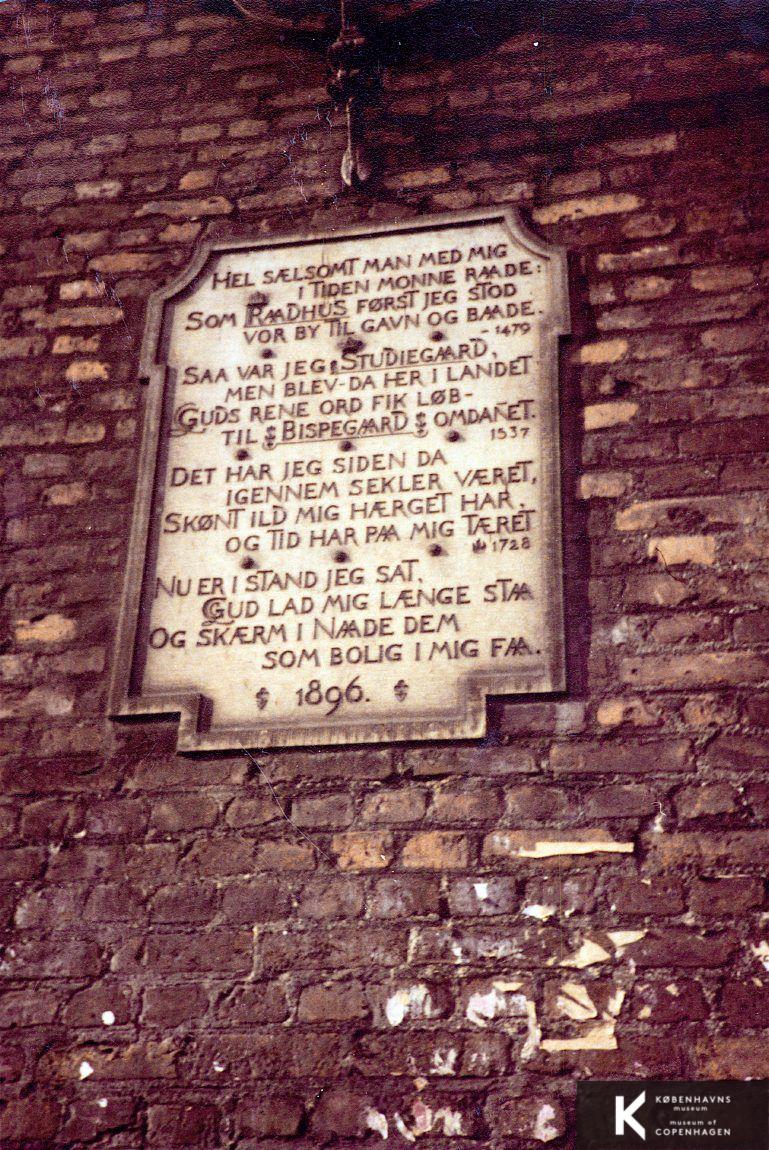 HEL SÆLSOMT MAN MED MIG
I TIDEN MONNE RAADE:
SOM RAADHUS FØRST JEG STOD
VOR BY TIL GAVN OG BAADE.
- 1479
SAA VAR JEG STUDIEGAARD,
MEN BLEV - DA HER I LANDET
GUDS RENE ORD FIK LØB -
TIL BISPEGAARD OMDANET.
1537
DET HAR JEG SIDEN DA
IGENNEM SEKLER VÆRET,
SKØNT ILD MIG HÆRGET HAR,
OG TID HAR PAA MIG TÆRET
1728
NU ER I STAND JEG SAT,
GUD LAD MIG LÆNGE STAA
OG SKÆRM I NAADE DEM
SOM BOLIG I MIG FAA.
1896.
K KØBENHAVNS
museum
museum of
COPENHAGEN